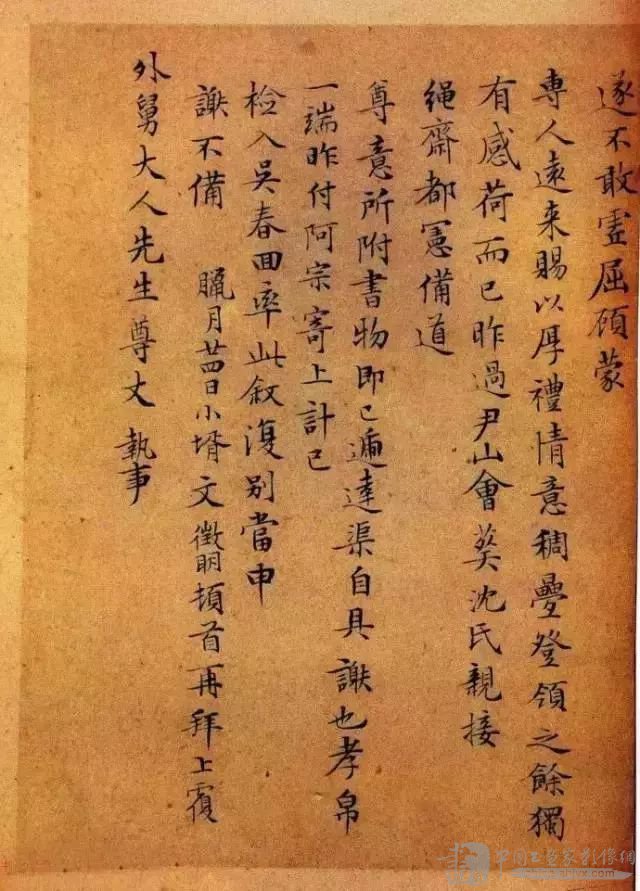 遂不敢虚屈顾蒙
専人遠来賜以厚禮情意稠疊登領之餘獨
有感荷而已昨過尹山會葬沈氏親接
繩齋都憲備道
尊意所附書物即已逓達渠自具謝也孝帛
一端昨付阿宗寄上計已
檢入吴春回率此叙復别當申
謝不備 臘月廿四日小壻文徵明頓首再拜上覆
外舅大人先生尊丈執事
中国工笔画家影像網